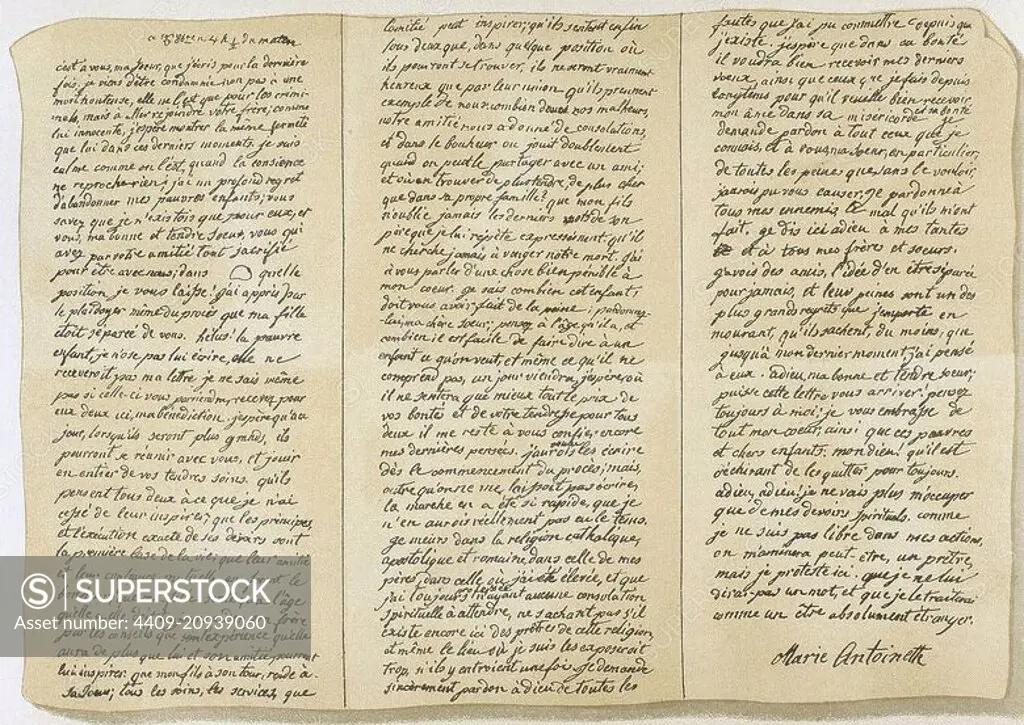 ce 16 8bre à 4 h ½ du matin
c'est à vous, ma Soeur, que j'écris pour la dernière
fois, je viens d'être condamnée non pas à une
mort honteuse, elle ne l'est que pour les crimi-
nels, mais à aller rejoindre votre frère; comme
lui innocente, j'espère montrer la même fermeté
que lui dans ces derniers moments. je suis
calme comme on l'est, quand la consience
ne reproche rien; j'ai un profond regret
d'abandonner mes pauvres enfants; vous
savez que je n'existois que pour eux, et
vous, ma bonne et tendre Soeur, vous qui
avez par votre amitié tout sacrifié
pour être avec nous; dans quelle
position je vous laisse! j'ai appris par
le plaidoyer même du procès que ma fille
étoit séparée de vous. hélas! la pauvre
enfant, je n'ose pas lui écrire, elle ne
receveroit pas ma lettre je ne sais même
pas si celle-ci vous parviendra, recevez pour
eux deux ici, ma bénédiction. j'espère qu'un
jour, lorsqu'ils seront plus grands, ils
pourront se réunir avec vous, et jouir
en entier de vos tendres soins. qu'ils
pensent tous deux à ce que je n'ai
cessé de leur inspirer, que les principes,
et l'exécution exacte de ses devoirs sont
la première base de la vie; que leur amitié
et leur
le
l'âge
qu'elle a elle doit frère
par les conseils que son expérience qu'elle
aura de plus que lui et son amitié pourront
lui inspirer. que mon fils à son tour, rende à
sa Soeur, tous les soins, les services, que
l'amitié peut inspirer; qu'ils sentent enfin
tous deux que, dans quelque position où
ils pourront se trouver, ils ne seront vraiment
heureux que par leur union. qu'ils prennent
exemple de nous. combien dans nos malheurs,
notre amitié nous a donné de consolations,
et dans le bonheur on jouit doublement
quand on peut le partager avec un ami;
et où en trouver de plus tendre, de plus cher
que dans sa propre famille? que mon fils
n'oublie jamais les derniers mots de son
père que je lui répète expressément. qu'il
ne cherche jamais à venger notre mort. j'ai
à vous parler d'une chose bien pénible à
mon coeur. je sais combien cet enfant,
doit vous avoir fait de la peine; pardonnez-
lui, ma chère Soeur; pensez à l'âge qu'il a, et
combien il est facile de faire dire à un
enfant ce qu'on veut, et même ce qu'il ne
comprend pas, un jour viendra, j'espère, où
il ne sentira que mieux tout le prix de
vos bontés et de votre tendresse pour tous
deux il me reste à vous confier encore
mes dernières pensées. j'aurois voulu les écrire
dès le commencement du procès; mais,
outre qu'on ne me laissoit pas écrire,
la marche en a été si rapide, que je
n'en aurois réellement pas eu le tems.
je meurs dans la religion catholique,
apostolique et romaine, dans celle de mes
pères, dans celle où j'ai été élevée, et que
j'ai toujours professée n'ayant aucune consolation
spirituelle à attendre, ne sachant pas s'il
existe encore ici des prêtres de cette religion,
et même le lieu où je suis les exposeroit
trop, s'ils y entroient une fois. je demande
sincèrement pardon à dieu de toutes les
fautes que j'ai pu commettre depuis que
j'existe. j'espère que dans sa bonté
il voudra bien recevoir mes derniers
voeux, ainsi que ceux que je fais depuis
longtems pour qu'il veuille bien recevoir
mon âme dans sa miséricorde et sa bonté
demande pardon à tout ceux que je
connais, et à vous, ma Soeur, en particulier,
de toutes les peines que, sans le vouloir,
j'aurois pu vous causer. je pardonne à
tous mes ennemis le mal qu'ils m'ont
fait. je dis ici adieu à mes tantes
et à tous mes frères et soeurs.
j'avois des amis, l'idée d'en être séparée
pour jamais, et leur peines sont un des
plus grands regrets que j'emporte en
mourant, qu'ils sachent, du moins, que
jusqu'à mon dernier moment, j'ai pensé
à eux. adieu, ma bonne et tendre Soeur;
puisse cette lettre vous arriver! pensez
toujours à moi; je vous embrasse de
tout mon coeur, ainsi que ces pauvres
et chers enfants. mon dieu! qu'il est
déchirant de les quitter pour toujours.
adieu, adieu! je ne vais plus m'occuper
que de mes devoirs spirituels. comme
je ne suis pas libre dans mes actions,
on m'amènera peut-être, un prêtre,
mais je proteste ici que je ne lui
dirai pas un mot, et que je le traiterai
comme un être absolument étranger.
Marie Antoinette
SUPERSTOCK
Asset number: 4409-20939060